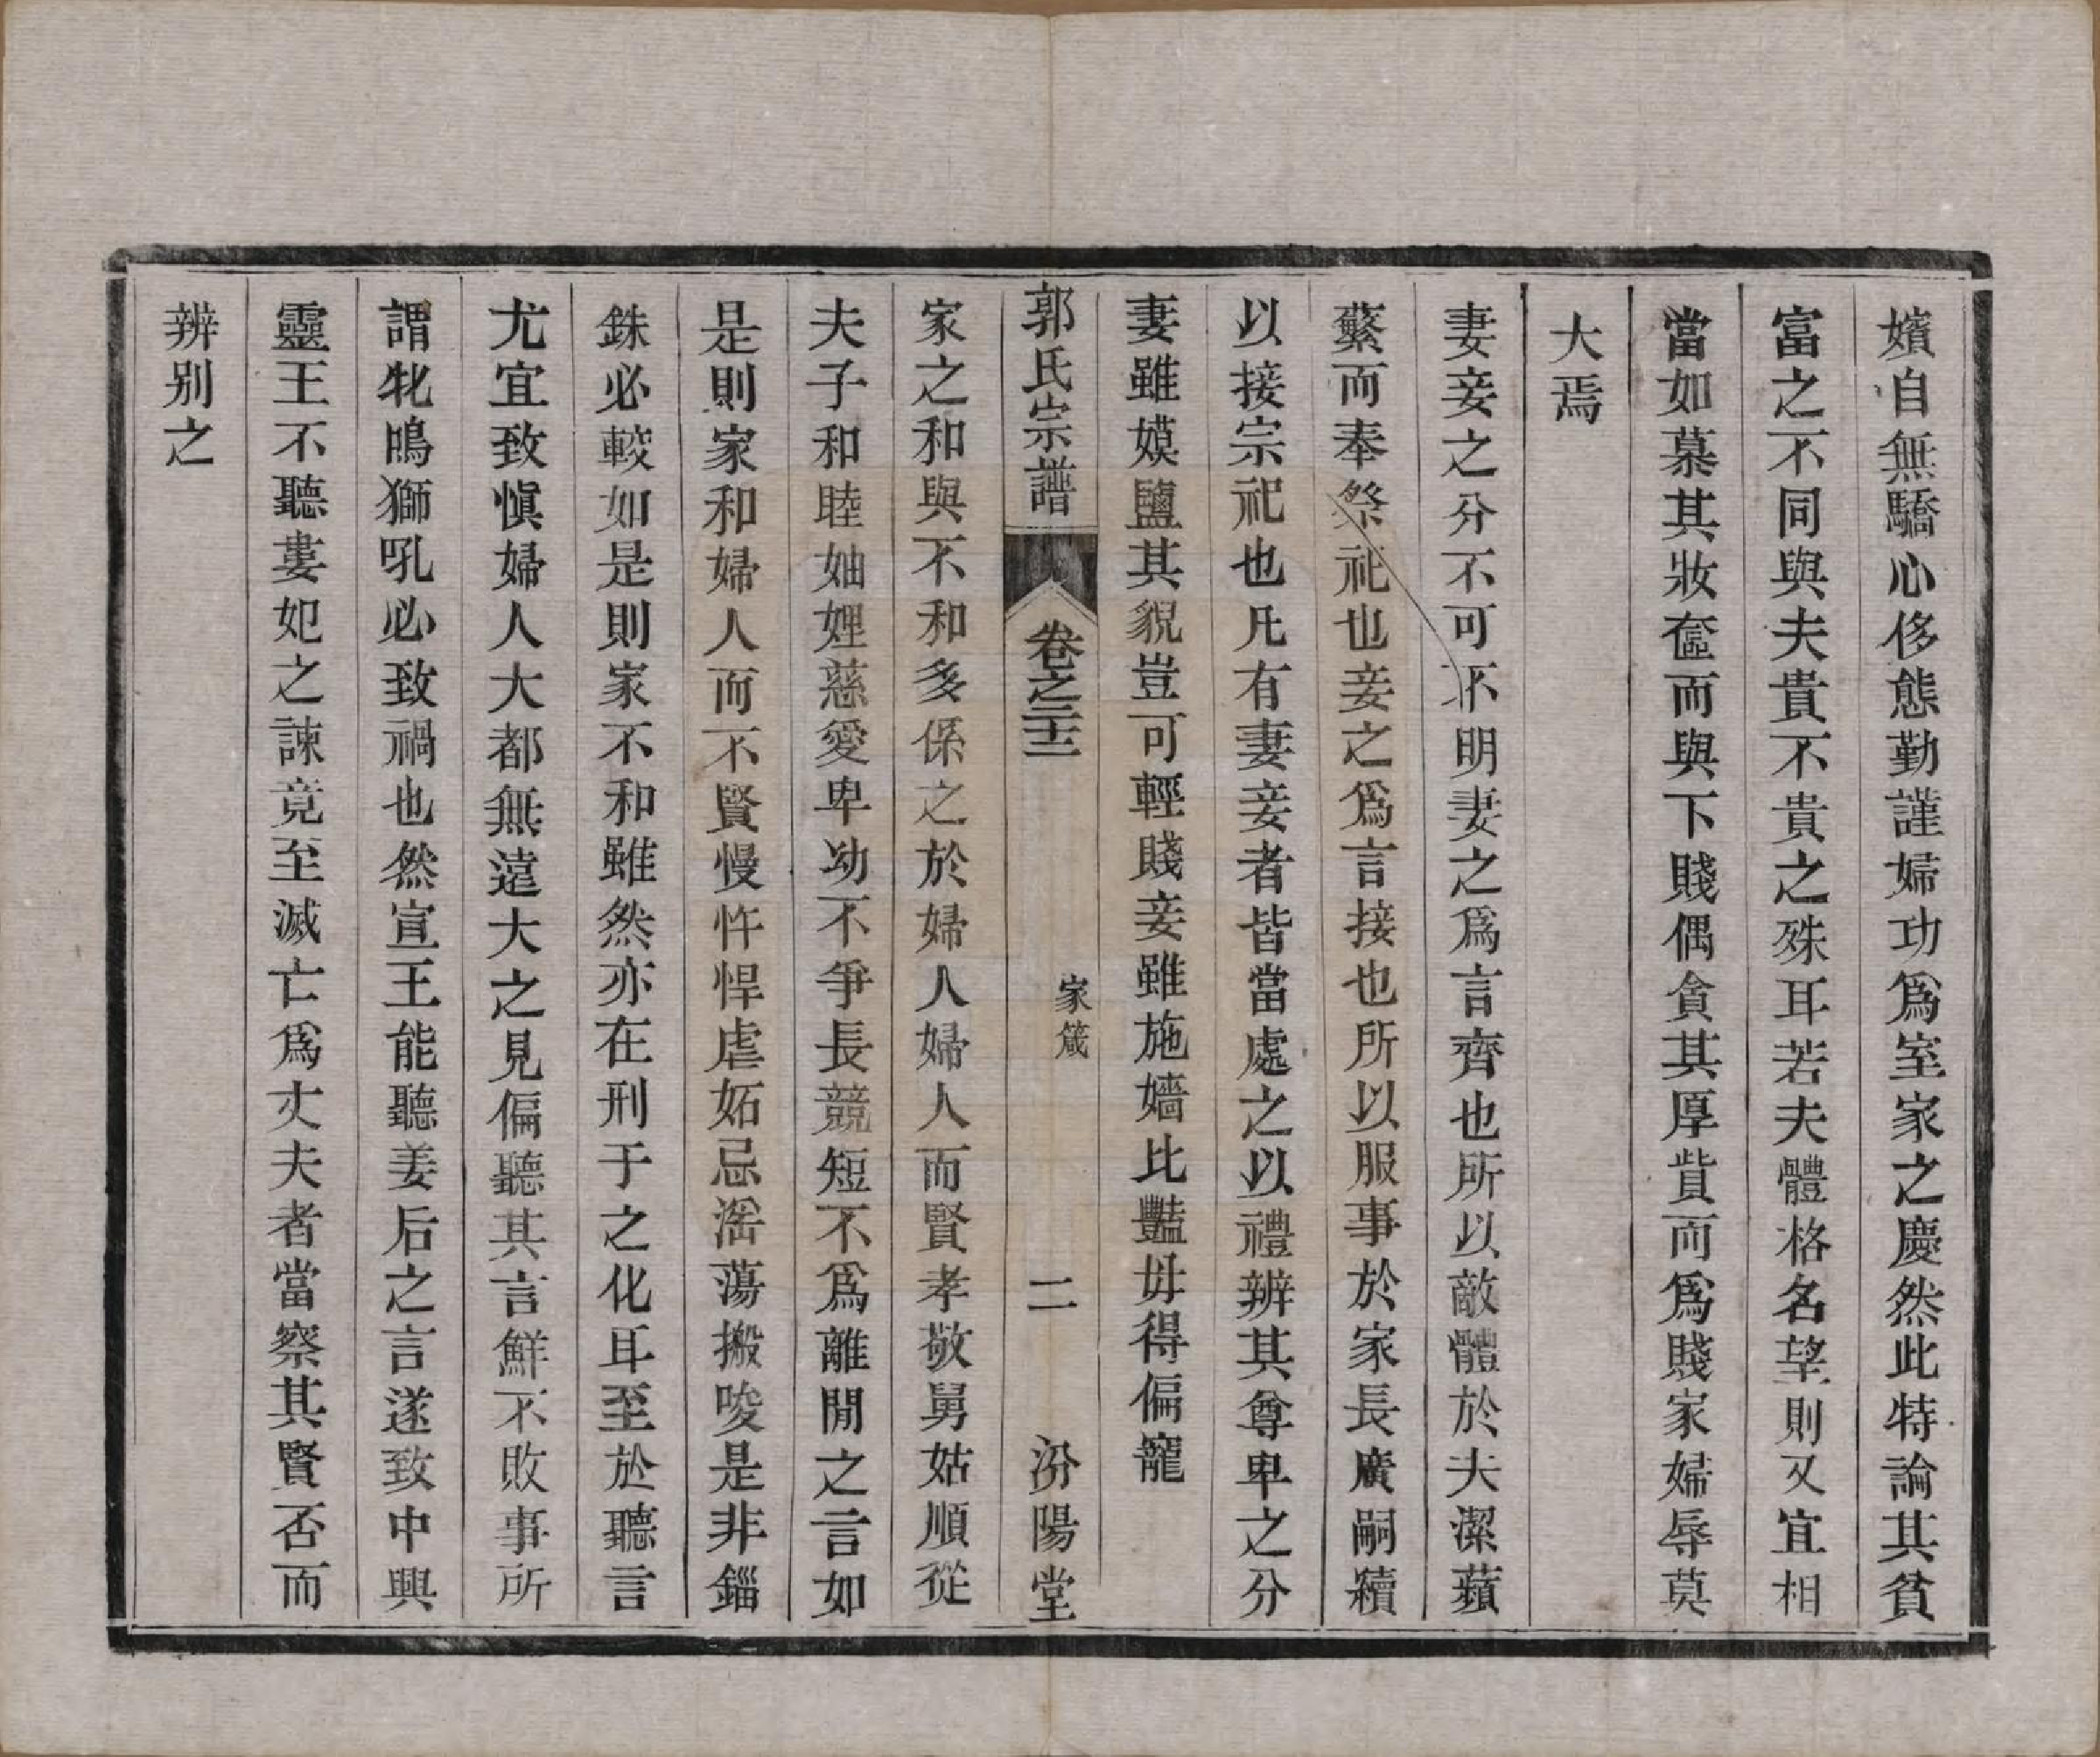 嬪自無驕心侈態勤謹婦功爲室家之慶然此特論其貧
富之不同與夫貴不貴之殊耳若夫體格名望則又宜相
當如慕其妝奩而與下賤偶貪其厚貲而爲賤家婦辱莫
大焉
妻妾之分不可不明妻之爲言齊也所以敵體於夫潔蘋
蘩而奉祭祀也妾之爲言接也所以服事於家長廣嗣續
以接宗祀也凡有妻妾者皆當處之以禮辨其尊卑之分
妻雖嫫鹽其貌豈可輕賤妾雖施嬙比豔毋得偏寵
郭氏宗譜 卷之二十二 家箴 二 汾陽堂
家之和與不和多係之於婦人婦人而賢孝敬舅姑順從
夫子和睦妯娌慈愛卑幼不爭長競短不爲離閒之言如
是則家和婦人而不賢慢忤悍虐妬忌滛蕩搬唆是非錙
銖必較如是則家不和雖然亦在刑于之化耳至於聽言
尤宜致愼婦人大都無遠大之見偏聽其言鮮不敗事所
謂牝鳴獅吼必致禍也然宣王能聽姜后之言遂致中興
靈王不聽婁妃之諫竟至滅亡爲丈夫者當察其賢否而
辨别之